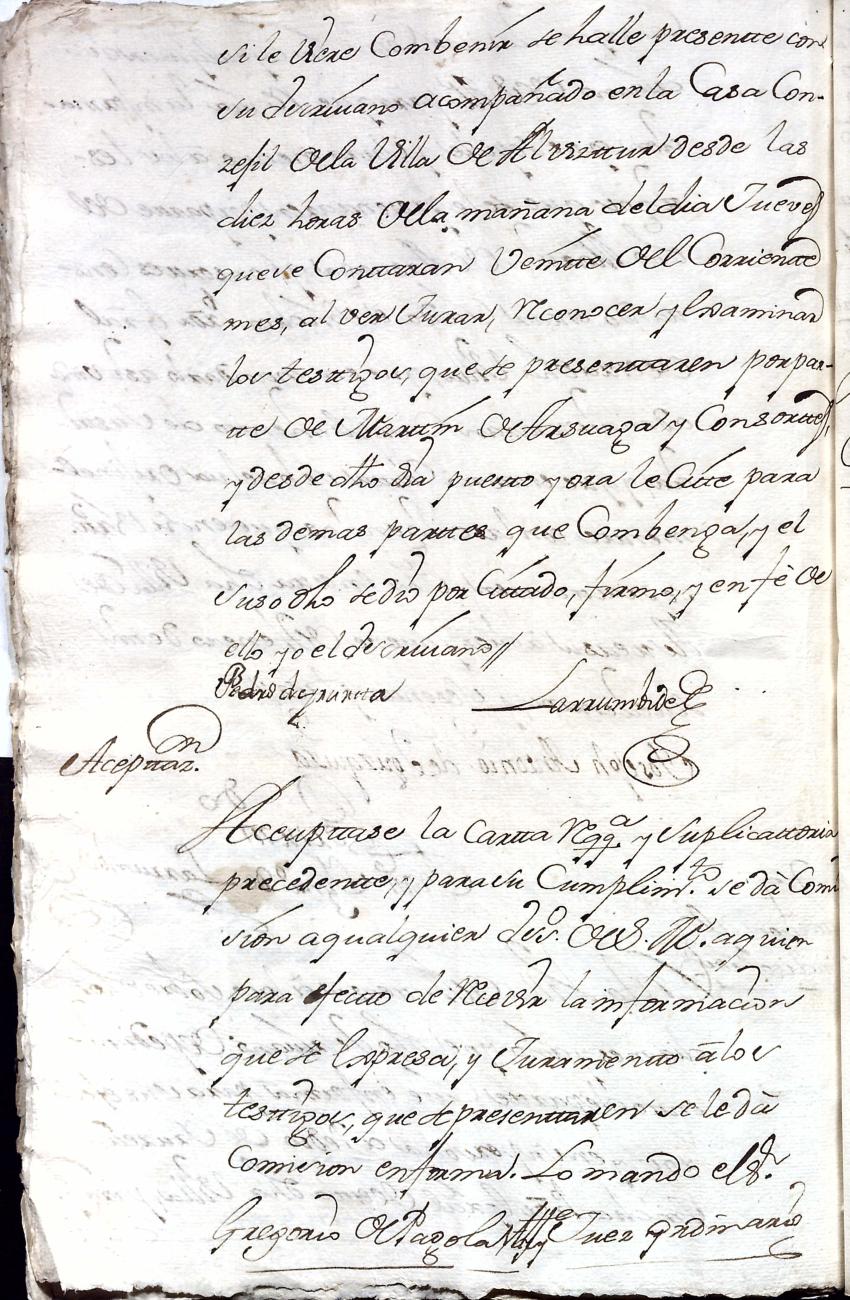 si le viere Combenir se halle presentte con
su escrivano acompañado en la Casa Con-
zejil de la Villa de Alvizttur desde las
diez horas de la mañana del dia Jueves
que se Conttaran Veintte del Corriente
mes, al ver Jurar, reconocer y Examinar
los testtigos, que se presenttaren por par-
tte de Marttin de Arsuaga y Consorttes,
y desde dho dia puestto y ora le Citte para
las demas parttes que Combenga, y el
suso dho se dio por Cittado, firmo, y en fè de
ello yo el escrivano//
Pedro de Larrumbide
Acepttazn.
Accepttase la Cartta Reqqa. y Suplicattoria
precedentte, y para su Cumplimto. se dà Comi
sion a qualquier esno. de S. M. a quien
para efectto de recivir la informacion
que se Expresa, y Juramentto à los
testtigos, que se presenttaren se le dà
Comicion en forma. Lo mando el Sr.
Gregorio de Pagola Juez ordinario